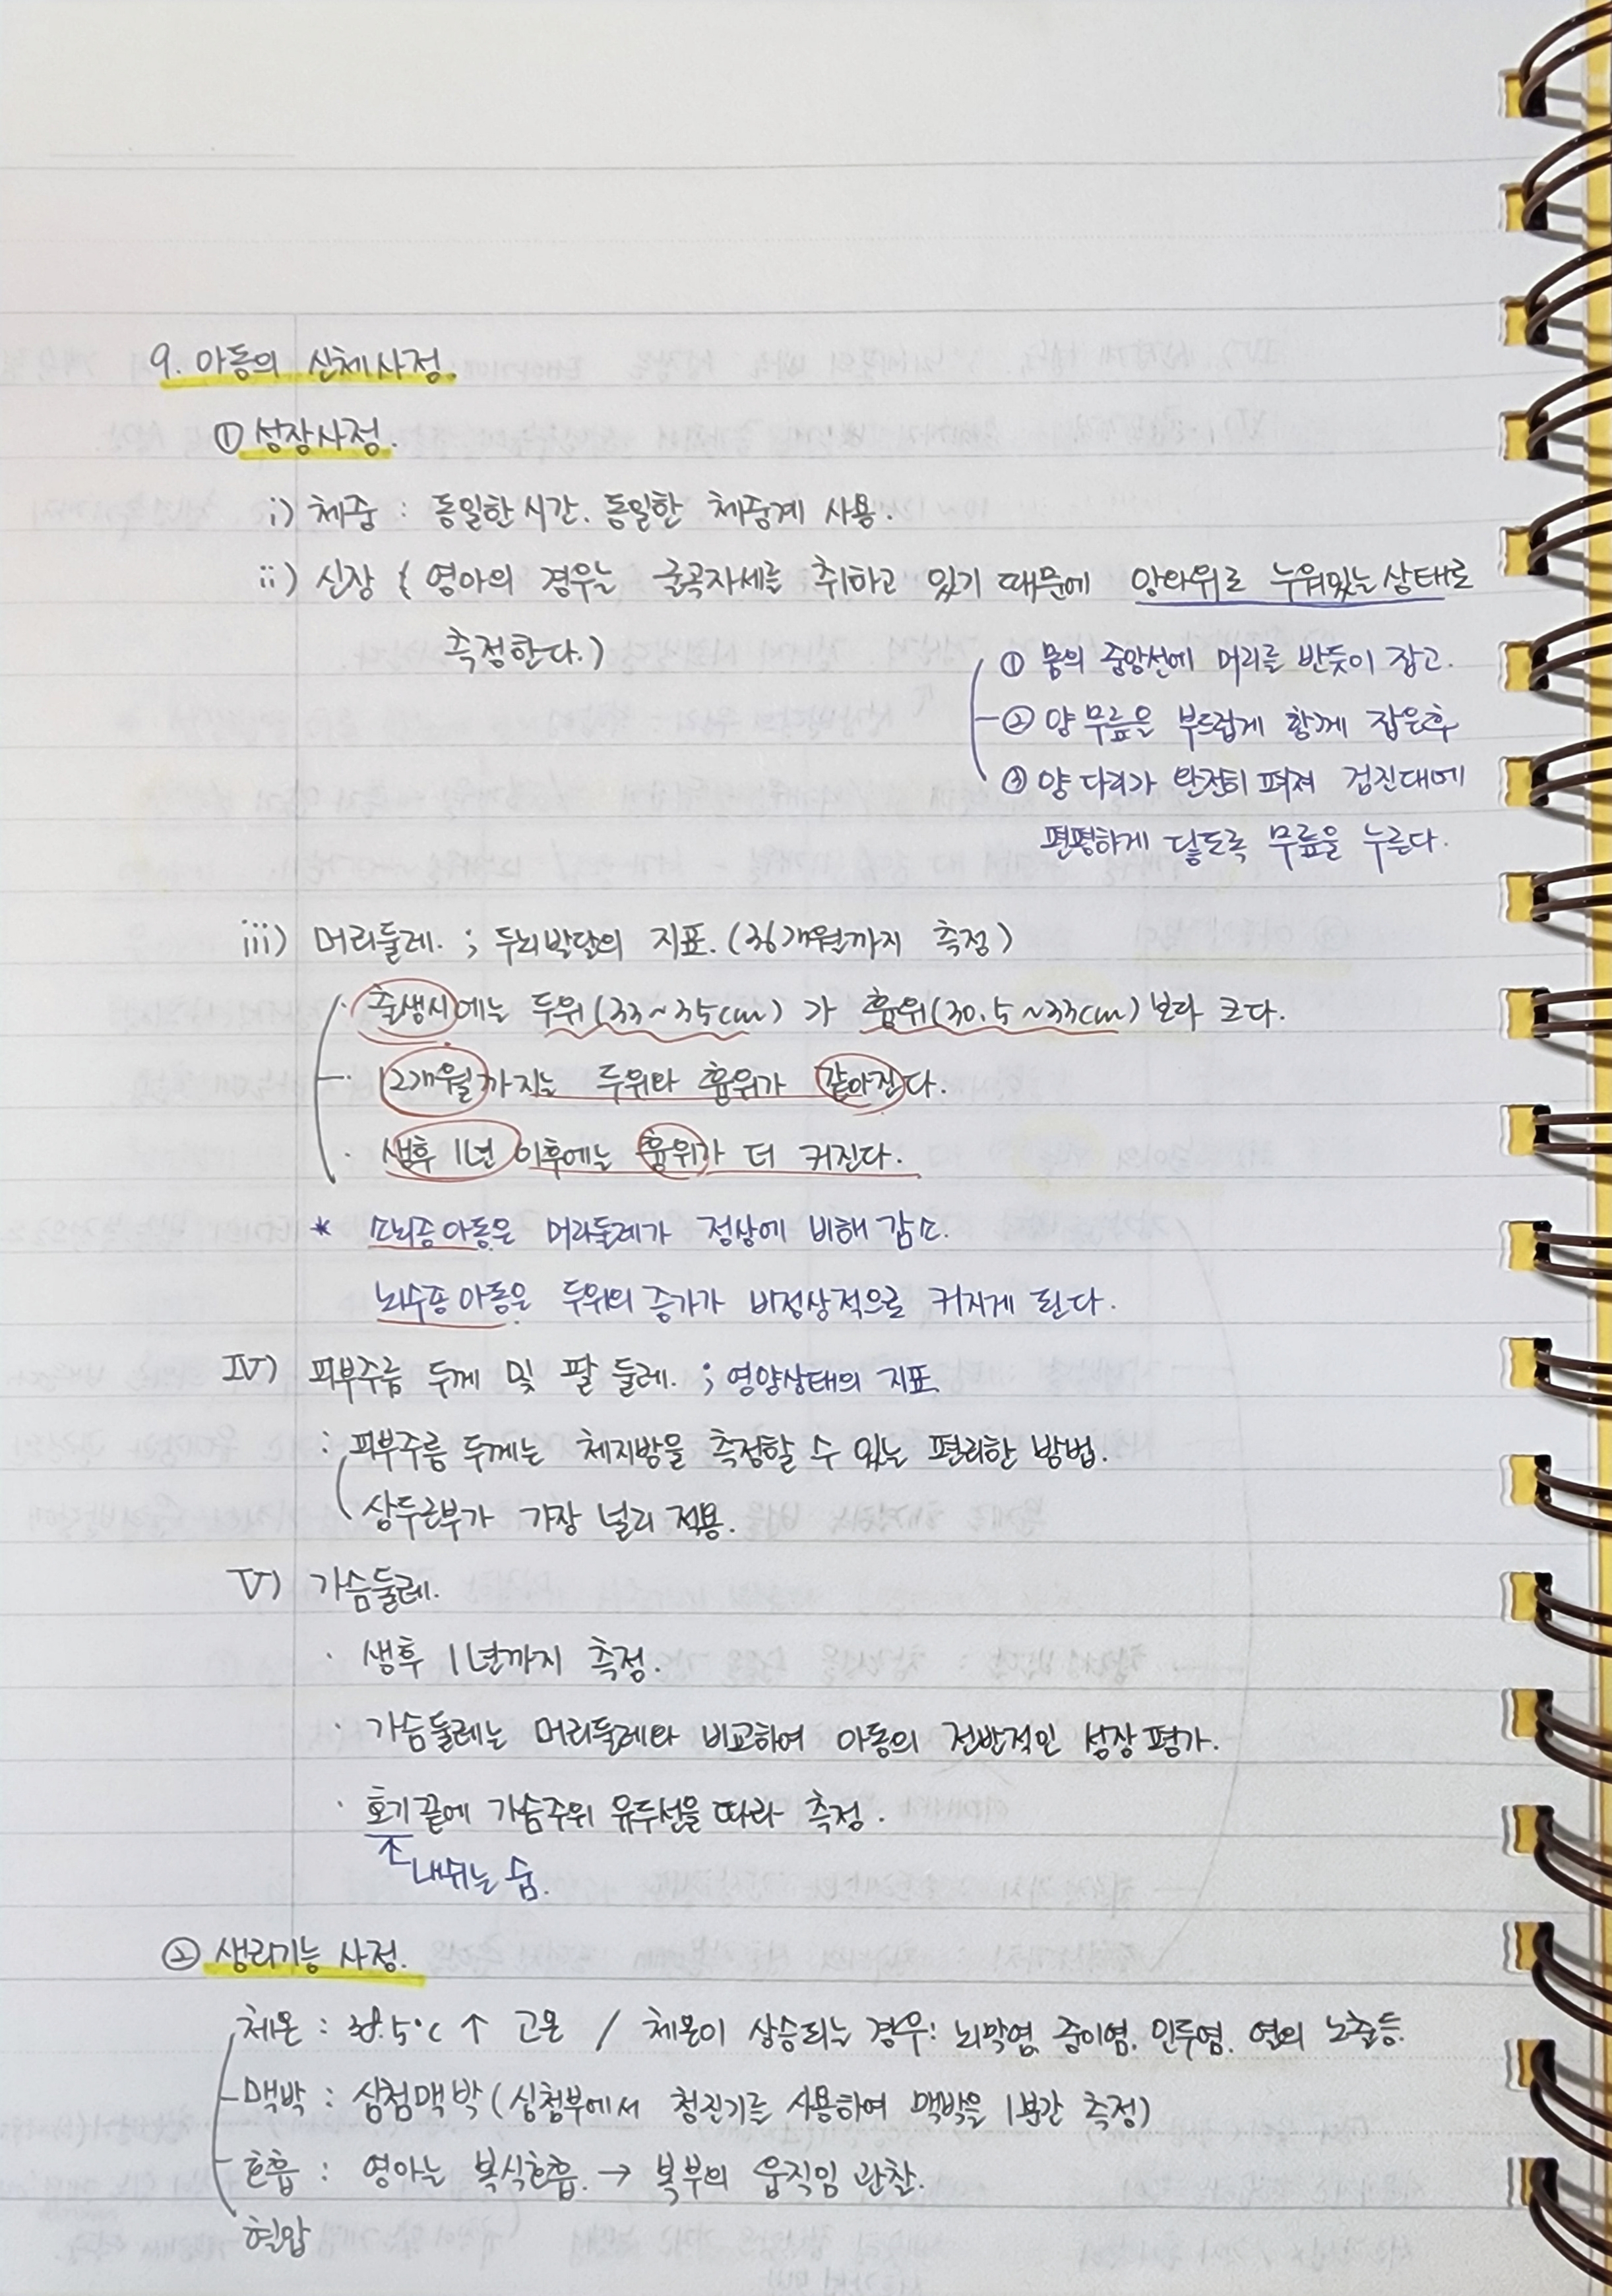 9. 아동의 신체사정.
① 성장사정.
i) 체중 : 동일한 시간. 동일한 체중계 사용.
ii) 신장 ( 영아의 경우는 굴곡자세를 취하고 있기 때문에 앙와위로 누워있는 상태로
측정한다.)
① 몸의 중앙선에 머리를 반듯이 잡고.
② 양 무릎을 부드럽게 함께 잡은후
③ 양 다리가 완전히 펴져 검진대에
편평하게 닿도록 무릎을 누른다.
iii) 머리둘레. ; 두뇌발달의 지표. (36개월까지 측정)
· 출생시에는 두위(33~35cm) 가 흉위(30.5~33cm) 보다 크다.
· 12개월까지는 두위와 흉위가 같아진다.
· 생후 1년 이후에는 흉위가 더 커진다.
* 소뇌증 아동은 머리둘레가 정상에 비해 감소.
뇌수종 아동은 두위의 증가가 비정상적으로 커지게 된다.
IV) 피부주름 두께 및 팔 둘레. ; 영양상태의 지표.
: 피부주름 두께는 체지방을 측정할 수 있는 편리한 방법.
상두근부가 가장 널리 적용.
V) 가슴둘레.
· 생후 1년까지 측정.
· 가슴둘레는 머리둘레와 비교하여 아동의 전반적인 성장 평가.
· 호기 끝에 가슴주위 유두선을 따라 측정.
↑ 내쉬는 숨.
② 생리기능 사정.
체온 : 38.5°C ↑ 고온 / 체온이 상승되는 경우: 뇌막염, 중이염, 인두염, 열의 노출등.
맥박 : 심첨맥박 (심첨부에서 청진기를 사용하여 맥박을 1분간 측정)
호흡 : 영아는 복식호흡. → 복부의 움직임 관찰.
혈압